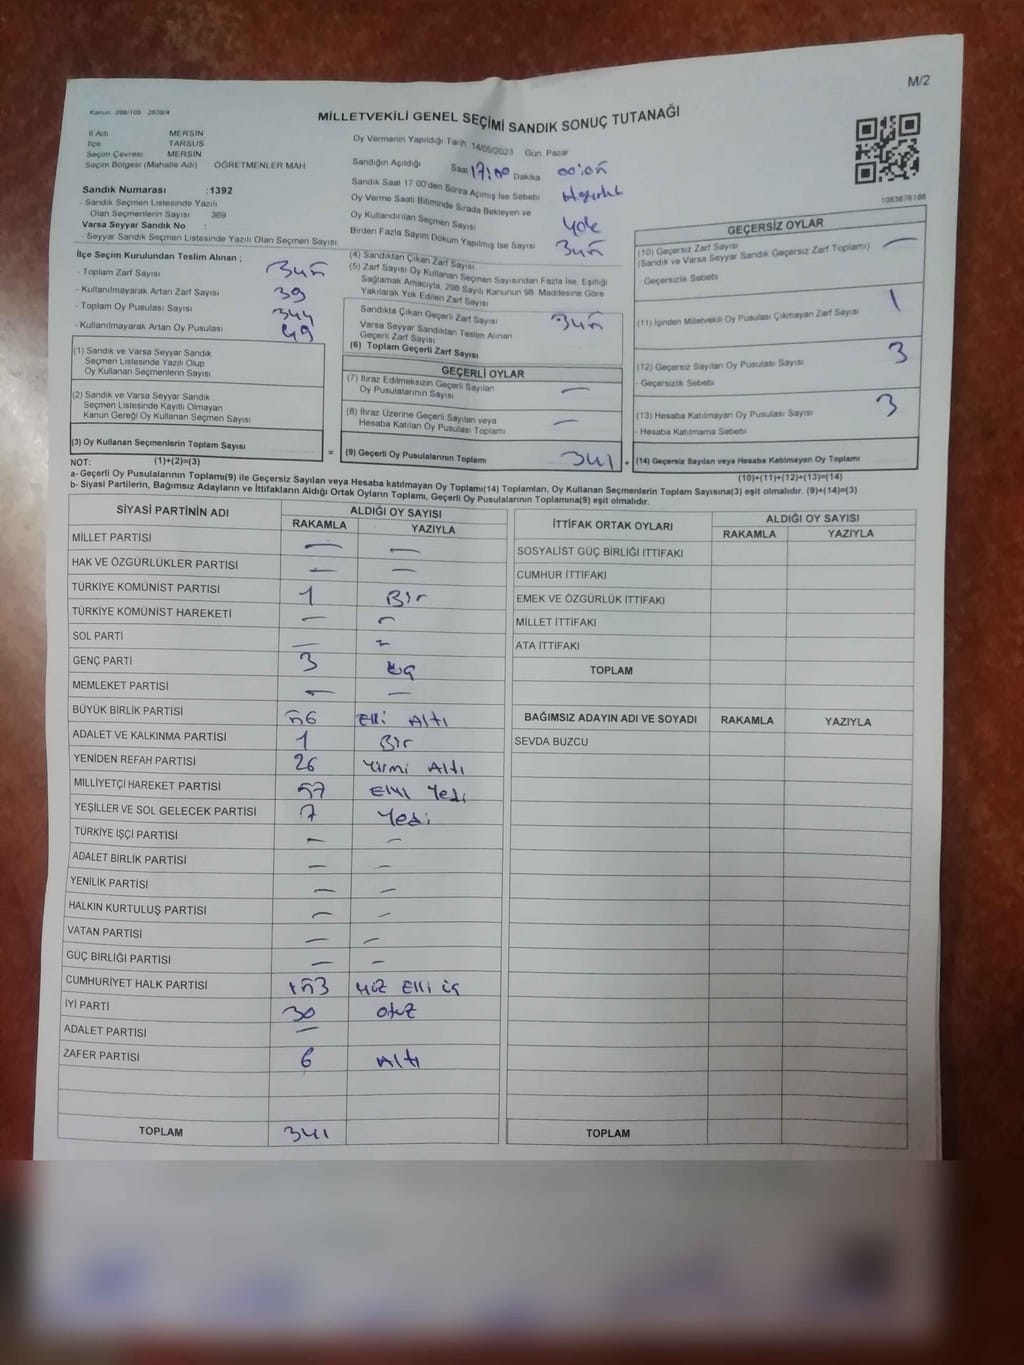 M/2
Kanun: 298/105 2839/4
MİLLETVEKİLİ GENEL SEÇİMİ SANDIK SONUÇ TUTANAĞI
İl Adı MERSİN
İlçe TARSUS
Seçim Çevresi MERSİN
Seçim Bölgesi (Mahalle Adı) ÖĞRETMENLER MAH.
Sandık Numarası :1392
- Sandık Seçmen Listesinde Yazılı
Olan Seçmenlerin Sayısı 369
Varsa Seyyar Sandık No :
- Seyyar Sandık Seçmen Listesinde Yazılı Olan Seçmen Sayısı
Oy Vermenin Yapıldığı Tarih 14/05/2023 Gün Pazar
Sandığın Açıldığı Saat 17:00 Dakika
Sandık Saat 17:00'den Sonra Açılmış İse Sebebi
Oy Verme Saati Bitiminde Sırada Bekleyen ve
Oy Kullandırılan Seçmen Sayısı
Birden Fazla Sayım Döküm Yapılmış İse Sayısı
1083876186
İlçe Seçim Kurulundan Teslim Alınan ;
- Toplam Zarf Sayısı
- Kullanılmayarak Artan Zarf Sayısı 39
- Toplam Oy Pusulası Sayısı 344
- Kullanılmayarak Artan Oy Pusulası 49
(1) Sandık ve Varsa Seyyar Sandık
Seçmen Listesinde Yazılı Olup
Oy Kullanan Seçmenlerin Sayısı
(2) Sandık ve Varsa Seyyar Sandık
Seçmen Listesinde Kayıtlı Olmayan
Kanun Gereği Oy Kullanan Seçmen Sayısı
(3) Oy Kullanan Seçmenlerin Toplam Sayısı
(4) Sandıktan Çıkan Zarf Sayısı
(5) Zarf Sayısı Oy Kullanan Seçmen Sayısından Fazla İse, Eşitliği
Sağlamak Amacıyla, 298 Sayılı Kanunun 98. Maddesine Göre
Yakılarak Yok Edilen Zarf Sayısı
Sandıkta Çıkan Geçerli Zarf Sayısı
Varsa Seyyar Sandıktan Teslim Alınan
Geçerli Zarf Sayısı
(6) Toplam Geçerli Zarf Sayısı
GEÇERLİ OYLAR
(7) İtiraz Edilmeksizin Geçerli Sayılan
Oy Pusulalarının Sayısı —
(8) İtiraz Üzerine Geçerli Sayılan veya
Hesaba Katılan Oy Pusulası Toplamı —
= (9) Geçerli Oy Pusulalarının Toplamı 341 +
GEÇERSİZ OYLAR
(10) Geçersiz Zarf Sayısı —
(Sandık ve Varsa Seyyar Sandık Geçersiz Zarf Toplamı)
- Geçersizlik Sebebi
(11) İçinden Milletvekili Oy Pusulası Çıkmayan Zarf Sayısı 1
(12) Geçersiz Sayılan Oy Pusulası Sayısı 3
- Geçersizlik Sebebi
(13) Hesaba Katılmayan Oy Pusulası Sayısı 3
- Hesaba Katılmama Sebebi
(14) Geçersiz Sayılan veya Hesaba Katılmayan Oy Toplamı
NOT: (1)+(2)=(3) (10)+(11)+(12)+(13)=(14)
a- Geçerli Oy Pusulalarının Toplamı(9) ile Geçersiz Sayılan veya Hesaba katılmayan Oy Toplamı(14) Toplamları, Oy Kullanan Seçmenlerin Toplam Sayısına(3) eşit olmalıdır. (9)+(14)=(3)
b- Siyasi Partilerin, Bağımsız Adayların ve İttifakların Aldığı Ortak Oyların Toplamı, Geçerli Oy Pusulalarının Toplamına(9) eşit olmalıdır.
SİYASİ PARTİNİN ADI ALDIĞI OY SAYISI
RAKAMLA YAZIYLA
MİLLET PARTİSİ — —
HAK VE ÖZGÜRLÜKLER PARTİSİ — —
TÜRKİYE KOMÜNİST PARTİSİ 1 Bir
TÜRKİYE KOMÜNİST HAREKETİ — —
SOL PARTİ — —
GENÇ PARTİ 3 üç
MEMLEKET PARTİSİ — —
BÜYÜK BİRLİK PARTİSİ 56 Elli Altı
ADALET VE KALKINMA PARTİSİ 1 Bir
YENİDEN REFAH PARTİSİ 26 Yirmi Altı
MİLLİYETÇİ HAREKET PARTİSİ 57 Elli Yedi
YEŞİLLER VE SOL GELECEK PARTİSİ 7 Yedi
TÜRKİYE İŞÇİ PARTİSİ — —
ADALET BİRLİK PARTİSİ — —
YENİLİK PARTİSİ — —
HALKIN KURTULUŞ PARTİSİ — —
VATAN PARTİSİ — —
GÜÇ BİRLİĞİ PARTİSİ — —
CUMHURİYET HALK PARTİSİ 153 Yüz Elli üç
İYİ PARTİ 30 Otuz
ADALET PARTİSİ —
ZAFER PARTİSİ 6 Altı
TOPLAM 341
İTTİFAK ORTAK OYLARI ALDIĞI OY SAYISI
RAKAMLA YAZIYLA
SOSYALİST GÜÇ BİRLİĞİ İTTİFAKI
CUMHUR İTTİFAKI
EMEK VE ÖZGÜRLÜK İTTİFAKI
MİLLET İTTİFAKI
ATA İTTİFAKI
TOPLAM
BAĞIMSIZ ADAYIN ADI VE SOYADI RAKAMLA YAZIYLA
SEVDA BUZCU
TOPLAM